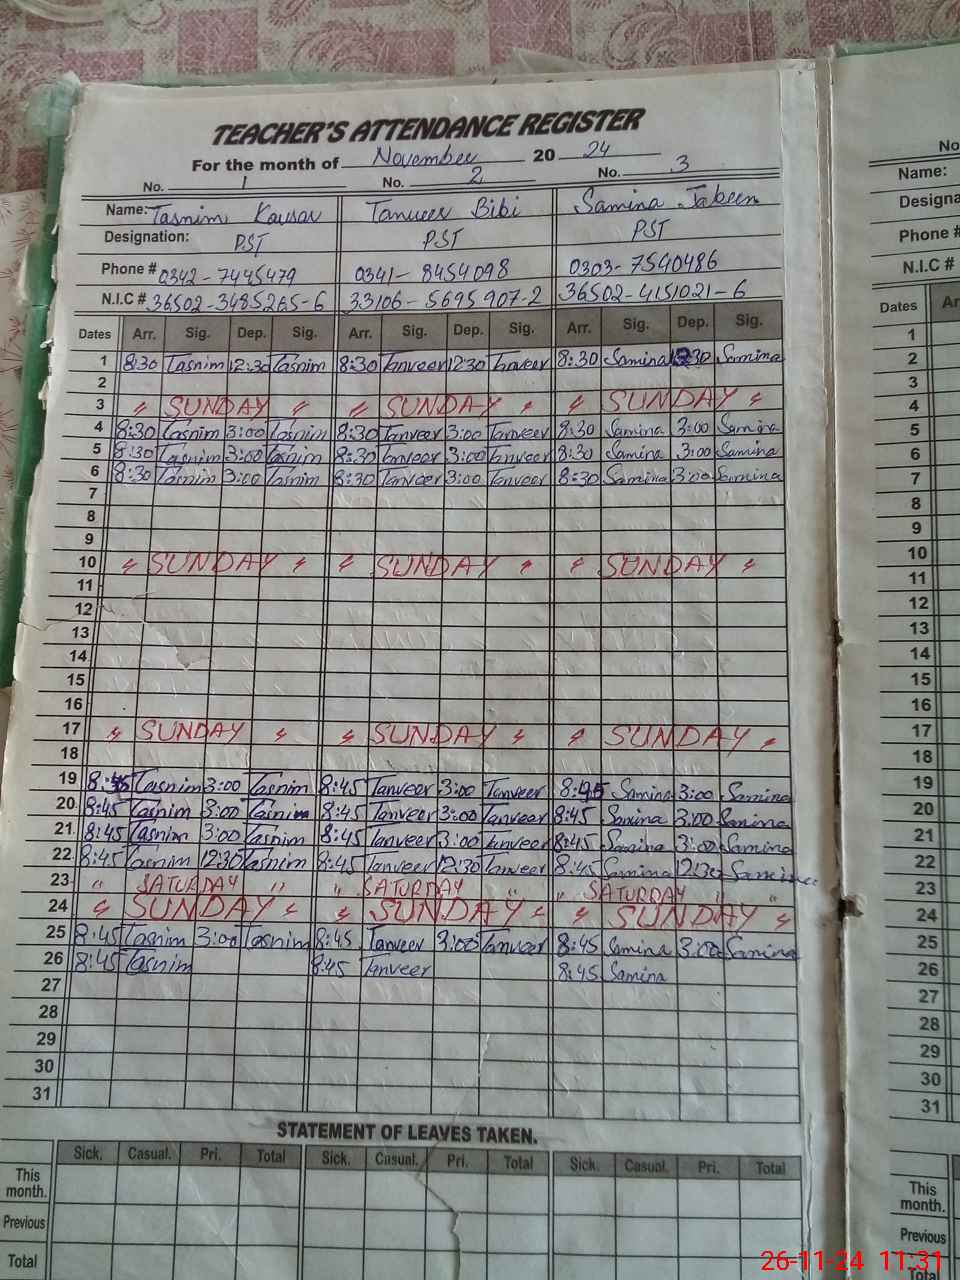 TEACHER'S ATTENDANCE REGISTER
For the month of November 20 24
No. 1 No. 2 No. 3
Name: Tasnim Kausar Tanveer Bibi Samina Jabeen
Designation: PST PST PST
Phone # 0342-7445479 0341-8454098 0303-7540486
N.I.C # 36502-3485265-6 33106-5695907-2 36502-4151021-6
Dates Arr. Sig. Dep. Sig. Arr. Sig. Dep. Sig. Arr. Sig. Dep. Sig.
1 8:30 Tasnim 12:30 Tasnim 8:30 Tanveer 12:30 Tanveer 8:30 Samina 12:30 Samina
2
3 " SUNDAY " " SUNDAY " " SUNDAY "
4 8:30 Tasnim 3:00 Tasnim 8:30 Tanveer 3:00 Tanveer 8:30 Samina 3:00 Samina
5 8:30 Tasnim 3:00 Tasnim 8:30 Tanveer 3:00 Tanveer 8:30 Samina 3:00 Samina
6 8:30 Tasnim 3:00 Tasnim 8:30 Tanveer 3:00 Tanveer 8:30 Samina 3:00 Samina
7
8
9
10 " SUNDAY " " SUNDAY " " SUNDAY "
11
12
13
14
15
16
17 " SUNDAY " " SUNDAY " " SUNDAY "
18
19 8:45 Tasnim 3:00 Tasnim 8:45 Tanveer 3:00 Tanveer 8:45 Samina 3:00 Samina
20 8:45 Tasnim 3:00 Tasnim 8:45 Tanveer 3:00 Tanveer 8:45 Samina 3:00 Samina
21 8:45 Tasnim 3:00 Tasnim 8:45 Tanveer 3:00 Tanveer 8:45 Samina 3:00 Samina
22 8:45 Tasnim 12:30 Tasnim 8:45 Tanveer 12:30 Tanveer 8:45 Samina 12:30 Samina
23 " SATURDAY " " SATURDAY " " SATURDAY "
24 " SUNDAY " " SUNDAY " " SUNDAY "
25 8:45 Tasnim 3:00 Tasnim 8:45 Tanveer 3:00 Tanveer 8:45 Samina 3:00 Samina
26 8:45 Tasnim 8:45 Tanveer 8:45 Samina
27
28
29
30
31
STATEMENT OF LEAVES TAKEN.
Sick. Casual. Pri. Total Sick. Casual. Pri. Total Sick. Casual. Pri. Total
This month.
Previous
Total
No
Name:
Designa
Phone #
N.I.C #
Dates Ar
1
2
3
4
5
6
7
8
9
10
11
12
13
14
15
16
17
18
19
20
21
22
23
24
25
26
27
28
29
30
31
This month.
Previous
Total
26-11-24 11:31